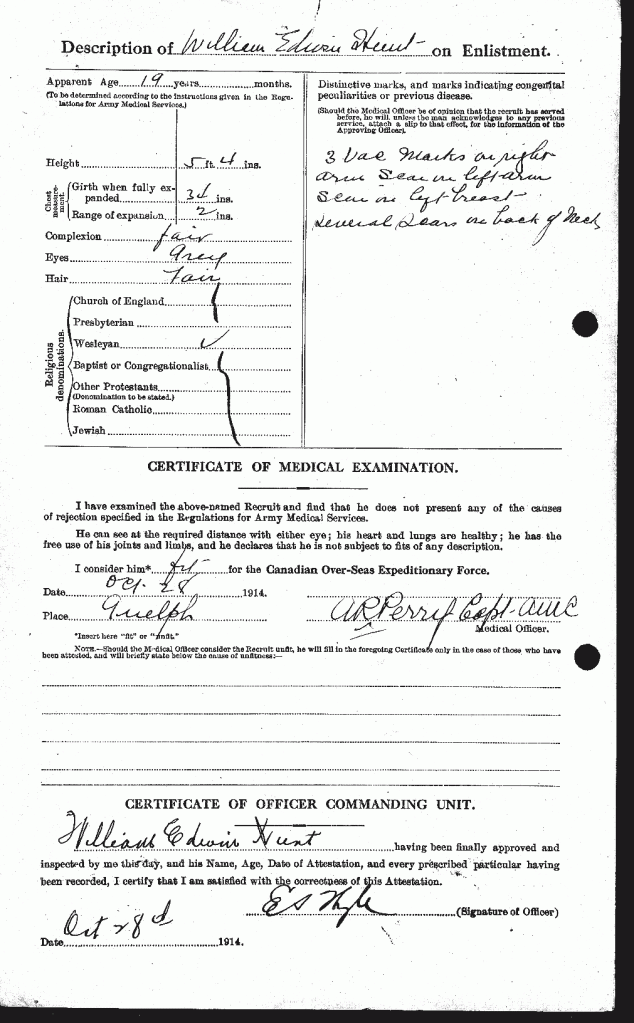 Description of William Edwin Hunt on Enlistment.
Apparent Age 19 years months.
(To be determined according to the instructions given in the Regulations for Army Medical Services.)
Height 5 ft. 4 ins.
Chest measurement.
Girth when fully expanded 34 ins.
Range of expansion 2 ins.
Complexion fair
Eyes Grey
Hair Fair
Religious denominations.
Church of England
Presbyterian
Wesleyan ✓
Baptist or Congregationalist
Other Protestants
(Denomination to be stated.)
Roman Catholic
Jewish
Distinctive marks, and marks indicating congenital
peculiarities or previous disease.
(Should the Medical Officer be of opinion that the recruit has served
before, he will, unless the man acknowledges to any previous
service, attach a slip to that effect, for the information of the
Approving Officer).
3 Vac Marks on right
arm Scar on left arm
Scar on left breast
several Scars on back of Neck
CERTIFICATE OF MEDICAL EXAMINATION.
I have examined the above-named Recruit and find that he does not present any of the causes
of rejection specified in the Regulations for Army Medical Services.
He can see at the required distance with either eye; his heart and lungs are healthy; he has the
free use of his joints and limbs, and he declares that he is not subject to fits of any description.
I consider him* fit for the Canadian Over-Seas Expeditionary Force.
Date Oct. 28 1914.
Place Guelph
AR Perry Capt AMC
Medical Officer.
*Insert here "fit" or "unfit."
NOTE.—Should the Medical Officer consider the Recruit unfit, he will fill in the foregoing Certificate only in the case of those who have
been attested, and will briefly state below the cause of unfitness:—
CERTIFICATE OF OFFICER COMMANDING UNIT.
William Edwin Hunt having been finally approved and
inspected by me this day, and his Name, Age, Date of Attestation, and every prescribed particular having
been recorded, I certify that I am satisfied with the correctness of this Attestation.
(Signature of Officer)
Date Oct 28d 1914.